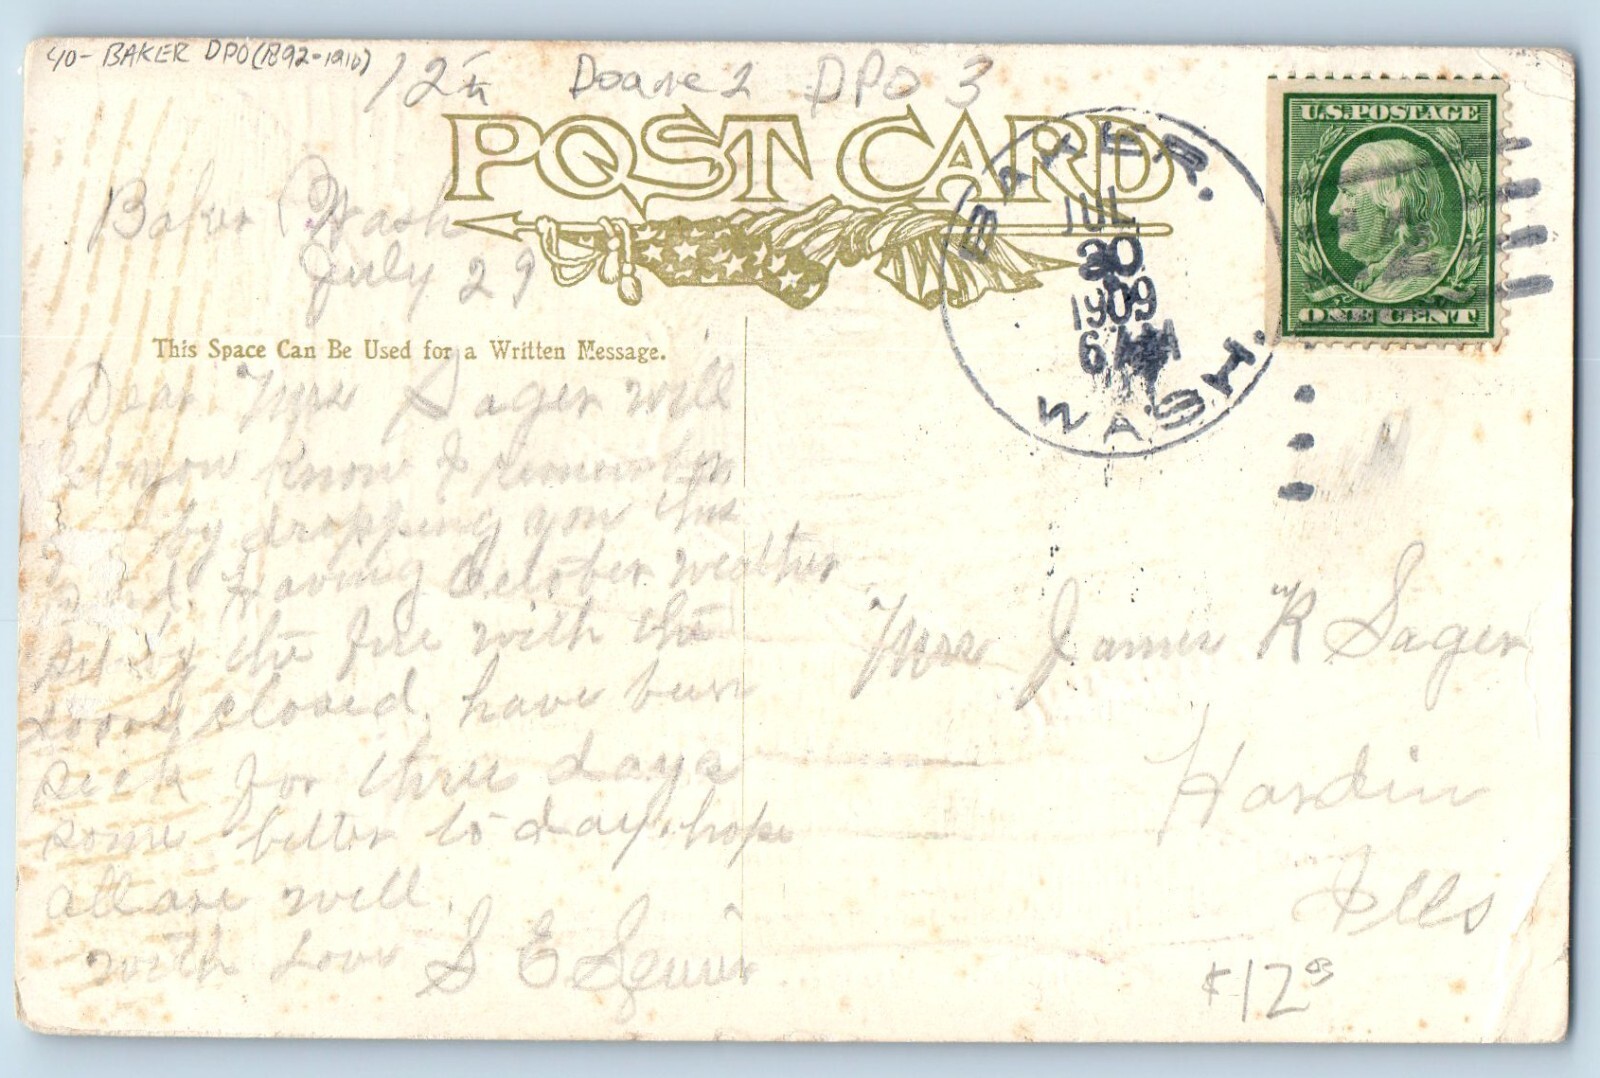 40- BAKER DPO (1892-1910)
12 Doane 2 DPO 3
POST CARD
U.S. POSTAGE
ONE CENT
BAKER.
JUL
30
1909
6 AM
WASH.
Baker Wash
July 29
This Space Can Be Used for a Written Message.
Dear Mrs Sager will
let you know I remember
by dropping you this
card. Having October weather
set by the fire with the
doors closed. have been
sick for three days
some better to day. hope
all are well.
with Love S E
Mrs James R Sager
Hardin
Ills
$12